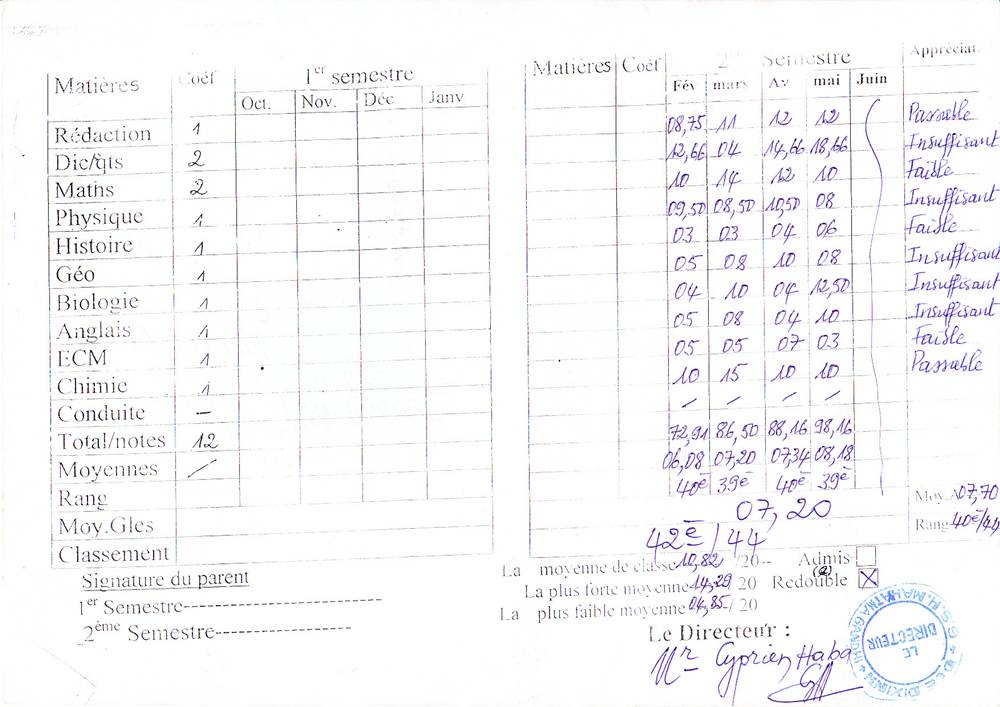 Matières Coéf 1er semestre
Oct. Nov. Déc Janv
Rédaction 1
Dic/qts 2
Maths 2
Physique 1
Histoire 1
Géo 1
Biologie 1
Anglais 1
ECM 1
Chimie 1
Conduite –
Total/notes 12
Moyennes /
Rang
Moy.Gles
Classement
Signature du parent
1er Semestre--------------------
2ème Semestre----------------
Matières Coéf Semestre Appréciat.
Fév mars Av mai Juin
08,75 11 12 12 Passable
12,66 04 14,66 18,66 Insuffisant
10 14 12 10 Faible
09,50 08,50 10,50 08 Insuffisant
03 03 04 06 Faible
05 08 10 08 Insuffisant
04 10 04 12,50 Insuffisant
05 08 04 10 Insuffisant
05 05 07 03 Faible
10 15 10 10 Passable
/ / / /
72,91 86,50 88,16 98,16
06,08 07,20 07,34 08,18
40è 39è 40è 39è
07,20
Moy.A 07,70
42è/44
Rang 40è/44
La moyenne de classe 10,82 /20-- Admis
La plus forte moyenne 14,29/ 20 (2) Redouble X
La plus faible moyenne 04,85/ 20
Le Directeur :
Mr Cyprien Haba
G.S.S.H. MAHATMA GANDHI * DCE DIXINN *
LE DIRECTEUR